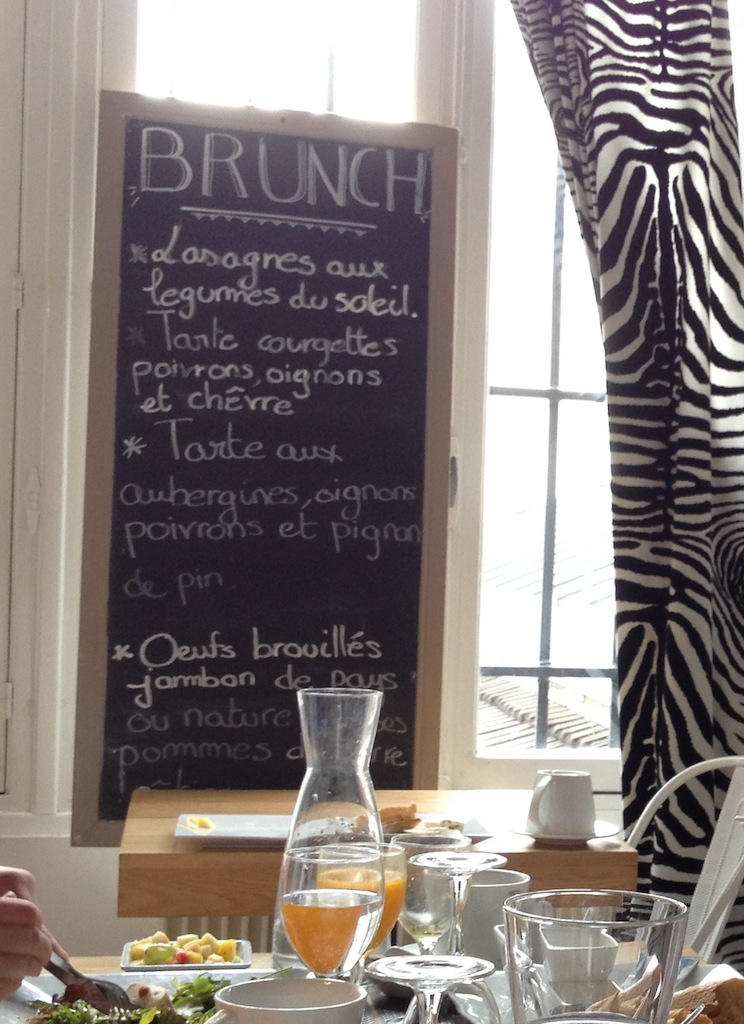 BRUNCH
* Lasagnes aux
legumes du soleil.
* Tarte courgettes
poivrons, oignons
et chêvre
* Tarte aux
aubergines, oignons
poivrons et pignon
de pin
* Oeufs brouillés
jambon de pays
ou nature
pommes de